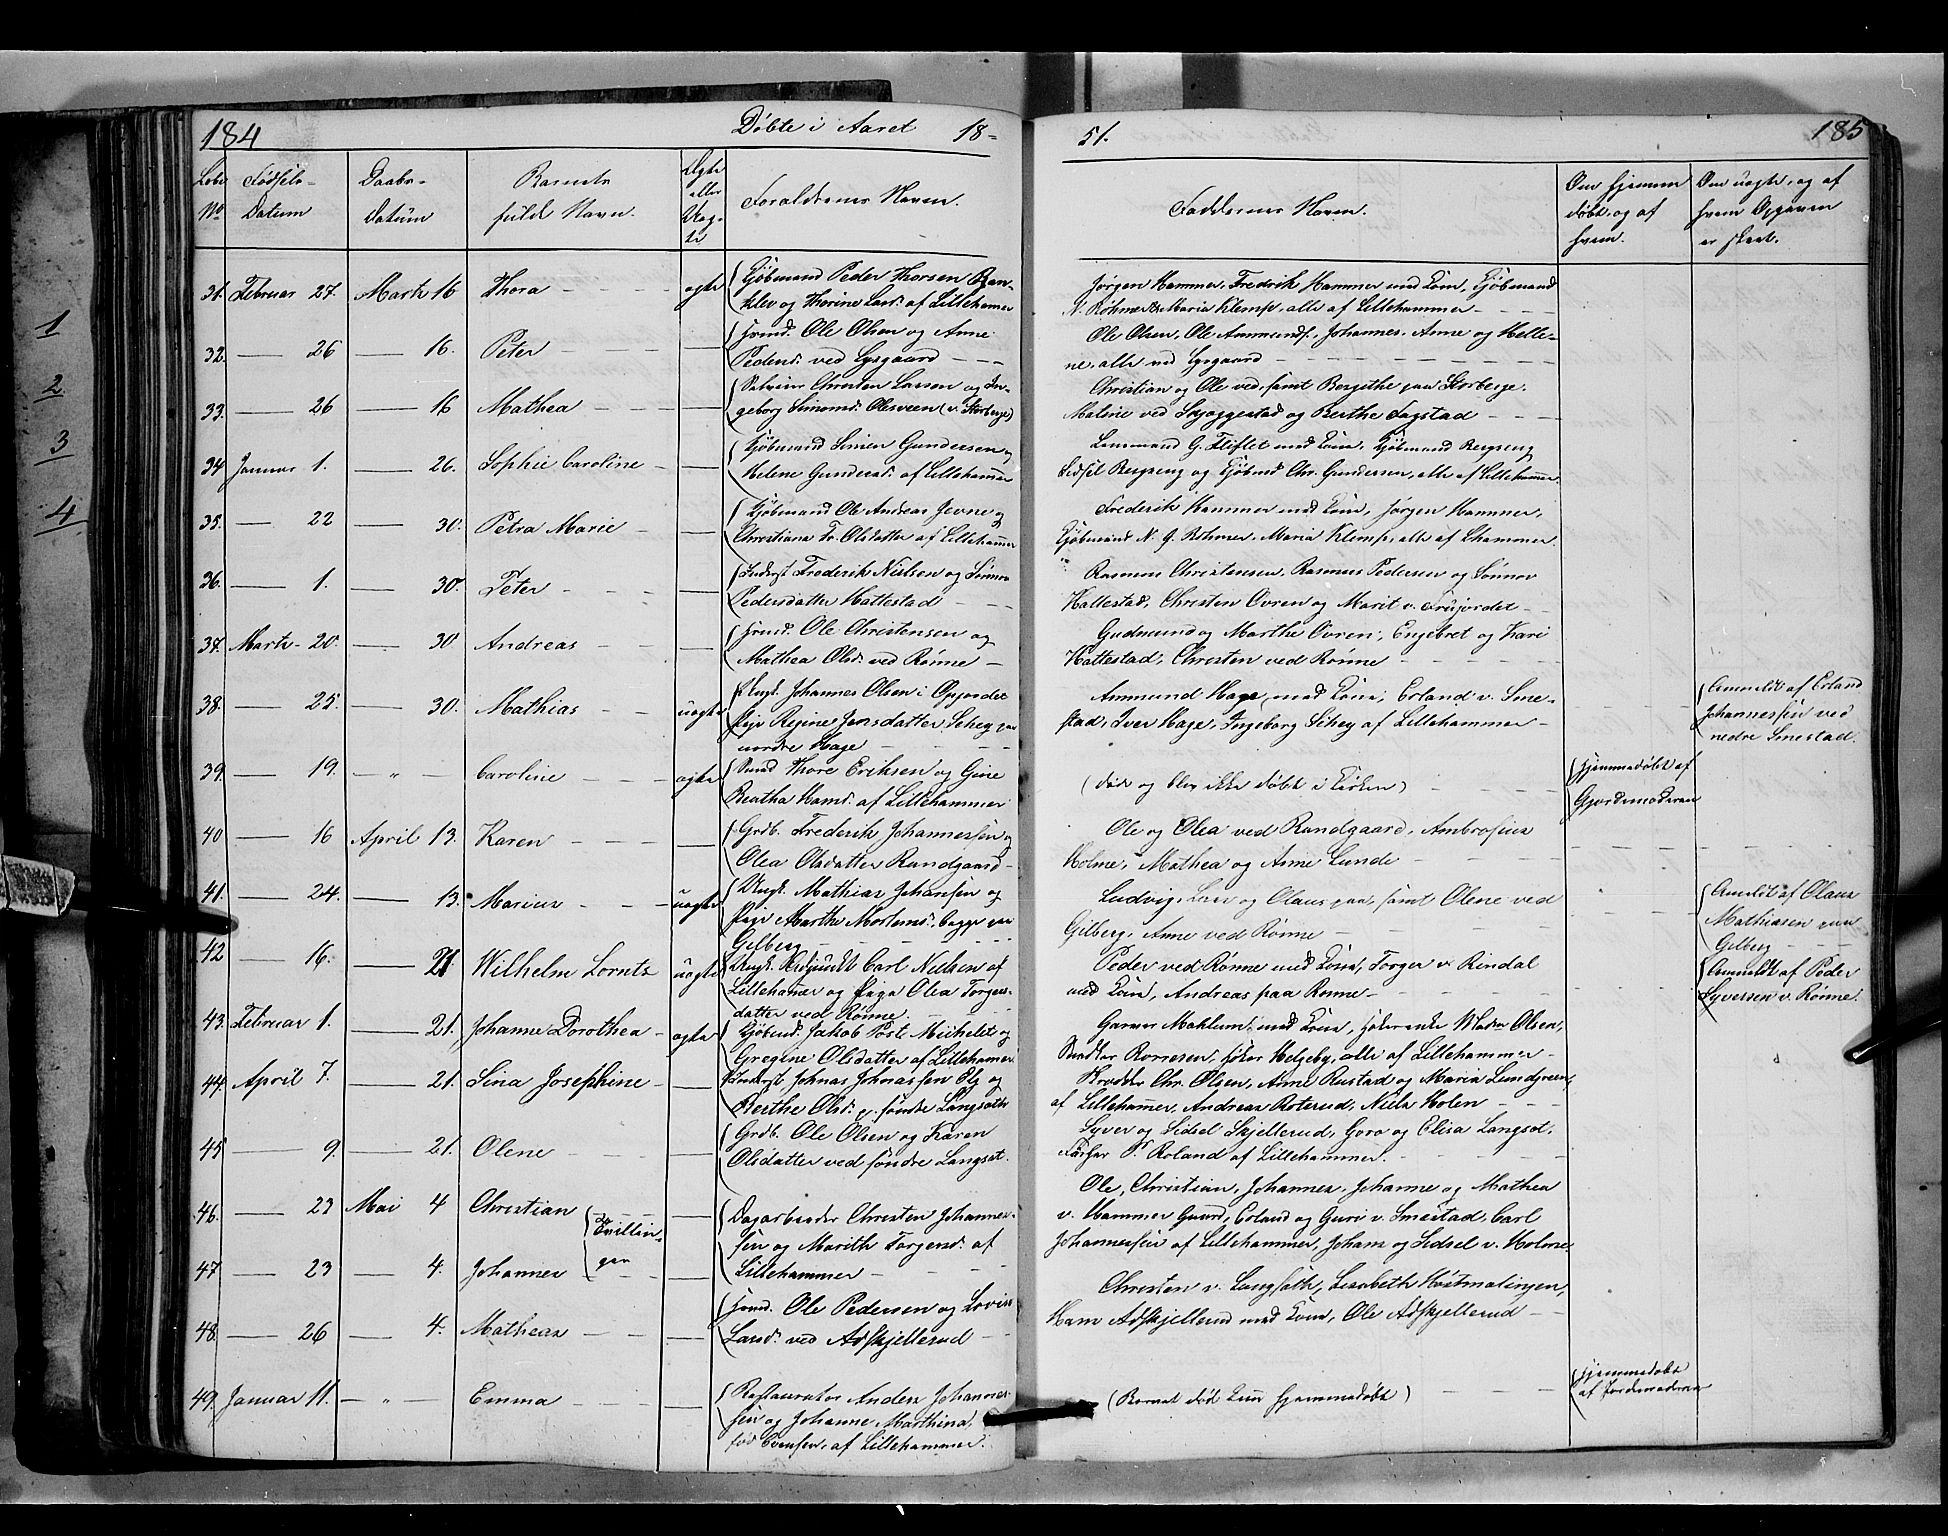 184
Døbte i Aaret 18-
51.
185
Løbe No
Fødsels-Datum
Daabs-Datum
Barnets fulde Navn.
Ægte eller Uægte
Forældrenes Navne.
Faddernes Navne.
Om hjemmedøbt, og af hvem.
Om uægte, og af hvem Opgaven er skeet.
31. Februar 27. Marts 16 Thora - - - ægte
Kjøbmand Peder Thorsen Ban-
klev og Thorine Larsd. af Lillehamer
Jørgen Hammer, Fredrik Hammer med Kone, Kjøbmand
N. Røhmer & Maria Klemp, alle af Lillehammer - - -
32. — 26 — 16. Peter - - - —
Huusmd. Ole Olsen og Anne
Pedersd. ved Lysgaard - - -
Ole Olsen, Ole Ammunds., Johannes, Anne og Helle-
ne, alle ved Lysgaard - - -
33. — 26 — 16 Mathea - - - —
Christen Larsen og In-
geborg Simensd. Olesveen (v. Storberge)
Christian og Ole ved, samt Borgithe paa Storberge.
Matine ved Skjæggestad og Berthe Fagstad - - -
34 Januar 1. — 26. Sophie Caroline - —
Kjøbmand Simen Gundersen og
Helene Gundersd. af Lillehammer
Lensmand G. Fliflet med Kone, Kjøbmand Bergseng
Sidsel Bergseng og Kjøbmd Chr. Gundersen, alle af Lillehammer.
35. — 22 — 30. Petra Marie - —
Kjøbmand Ole Andreas Jevne og
Christiane Fr. Olsdatter af Lillehammer
Frederik Hammer med Kone, Jørgen Hammer,
Kjøbmand N. J. Røhmer, Maria Klemp, alle af Lhammer.
36. — 1. — 30. Peter - - - —
Inderst Frederik Nielsen og Sønnev
Pedersdatter Hattestad - - -
Rasmus Christensen, Rasmus Pedersen og Sønnov
Hattestad, Christen Øvren og Marit v. Frujordet - -
37. Marts - 20. — 30 Andreas - - —
Huusmd. Ole Christensen og
Mathea Olsd. ved Rønne -
Gudmund og Marthe Øvren, Engebret og Kari
Hattestad, Christen ved Rønne - - -
38. — 25. — 30. Mathias - - uægte
Ungk. Johannes Olsen i Opjordet
Pige Regine Jensdatter Sehey paa
nordre Hage - - -
Ammund Hage med Kone, Erland v. Sme-
stad, Iver Hage, Ingeborg Sehey af Lillehammer -
Anmeldt af Erland
Johannessen ved
nedre Smestad.
39. — 19. - " - Caroline - - - ægte
Smed Thore Eriksen og Gine
Beatha Hansd. af Lillehammer
(død og blev ikke døbt i Kirken)
hjemmedøbt af
Gjordemoderen
40 — 16 April 13. Karen - - - —
Grdb. Frederik Johannessen og
Olea Olsdatter Rundgaard -
Ole og Olea ved Rundgaard, Ambrosius
Holme, Mathea og Anne Lunde - - -
41. — 24. — 13. Marius - - - uægte
Ungk. Mathias Johansen og
Pige Marthe Mortensd., begge paa
Gilberg - - -
Ludvig, Lars og Olaus paa, samt Olene ved
Gilberg, Anne ved Rønne - - -
Anmeldt af Olaus
Mathiasen paa
Gilberg
42 — 16. — 21 Wilhelm Lorntz uægte
Ungk. Carl Nielsen af
Lillehamer og Pige Olea Torgers-
datter ved Rønne. - - -
Peder ved Rønne med Kone, Torger v. Rindal
med Kone, Andreas paa Rønne - - -
Anmeldt af Peder
Syversen v. Rønne.
43. Februar 1. — 21. Johanne Dorothea - ægte
Kjøbmd. Jakob Post Michelet og
Gregine Olsdatter af Lillehamer
Garver Mæhlum, med Kone, Olsen,
Romesen, Helgeby, alle af Lillehammer -
44. April 7. — 21. Lina Josephine - —
Inderst Johnas Johnassen Elj og
Berthe Olsd. p. søndre Langsæth
Chr. Olsen, Anne Rustad og Maria Lundgreen,
af Lillehamer, Andreas Roterud, Niels Holen - - -
45 — 9. — 21. Olene - - - —
Grdb. Ole Olsen og Karen
Olsdatter ved søndre Langsæt.
Syver og Sidsel Skjellerud, Goro og Elisa Langsæt,
P. Roland af Lillehammer. - - -
46. — 23 Mai 4 Christian
Tvillin-
ger
Dagarbeider Christen Johannes-
sen og Marith Torgersd. af
Lillehammer - - -
Ole, Christian, Johannes, Johanne og Mathea
v. Hammer Gaard, Erland og Guri v. Smestad, Carl
Johannessen af Lillehammer, Johans og Sidsel v. Holme
47 — 23 — 4. Johannes
48. — 26 — 4. Matheas - - - —
Huusmd. Ole Pedersen og Lovise
Larsd. ved Aaskjellerud - -
Christen v. Langsæth, Lisabeth Høstmælingen,
Hans Aaskjellerud med Kone, Ole Aaskjellerud -
49. Januar 11. - " - Emma - - - —
Restauratør Anders Johannes-
sen og Johanne Marthina,
fød Evensen, af Lillehammer.
(Barnet død kun hjemmedøbt)
hjemmedøbt
af Jordemoderen
1
2
3
4